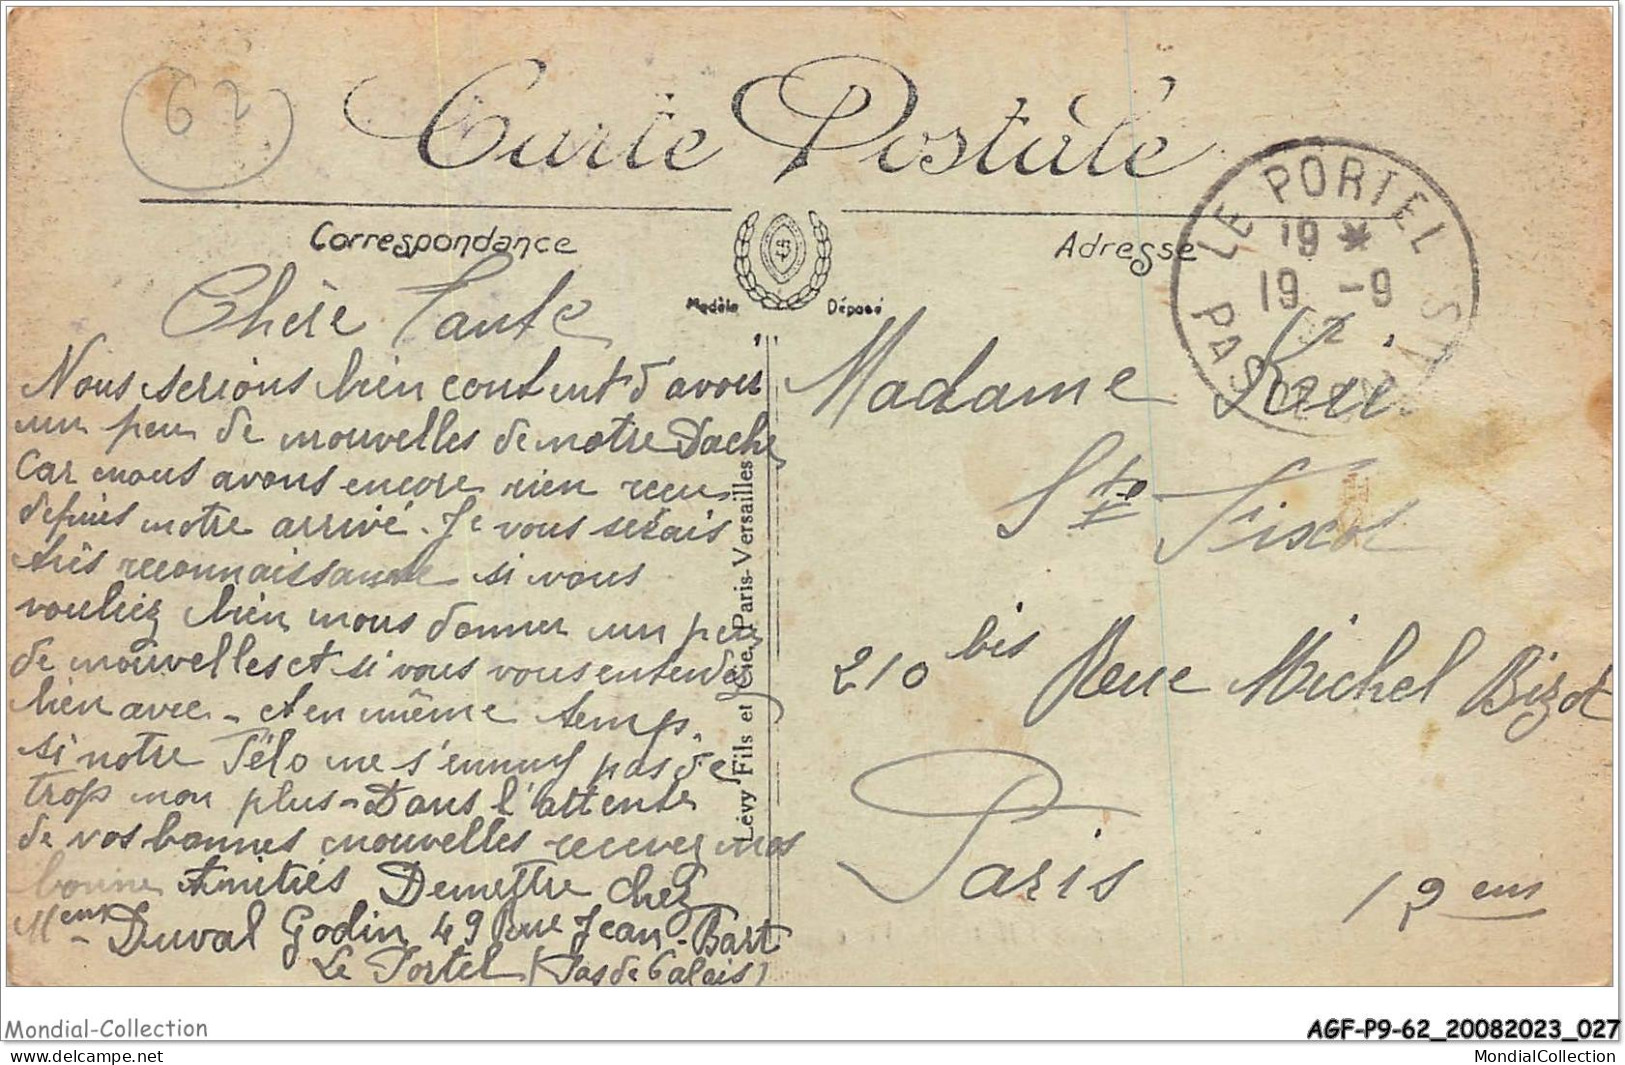 62
Carte Postale
Correspondance
Adresse
Modèle Déposé
LE PORTEL
19 *
19 -9
PAS
Lévy Fils et Cie, Paris-Versailles
Chère Tante
Nous serions bien content d'avoir
un peu de nouvelles de notre Dache
car nous avons encore rien reçu
depuis notre arrivé. Je vous serais
très reconnaissance si vous
vouliez bien nous donner un peu
de nouvelles et si vous vous entendez
bien avec - et en même temps.
si notre Télo ne s'ennuy pas de
trop non plus - Dans l'attente
de vos bonnes nouvelles recevez mes
bonne Amitiés Demettre chez
Duval Godin 49 Rue Jean-Bart
Le Portel (Pas de Calais)
Madame
210 bis Rue Michel Bizot
Paris
12 em
Mondial-Collection
AGF-P9-62_20082023_027
et www.delcampe.net
MondialCollection